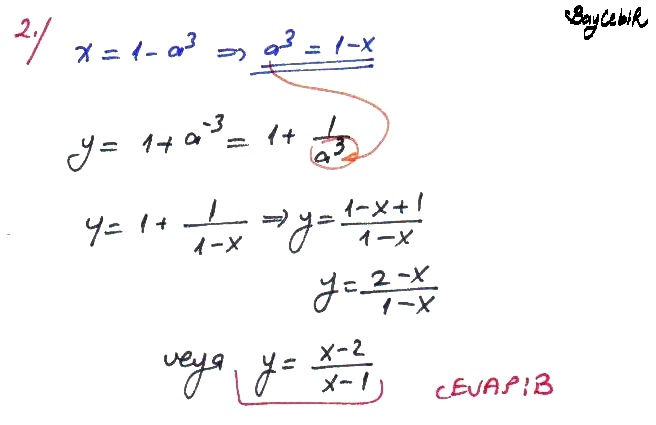 BayCebiR
2./ x = 1 - a³ ⇒ a³ = 1-x
y = 1 + a⁻³ = 1 + 1/a³
y = 1 + 1/(1-x) ⇒ y = (1-x+1)/(1-x)
y = (2-x)/(1-x)
veya y = (x-2)/(x-1) CEVAP:B